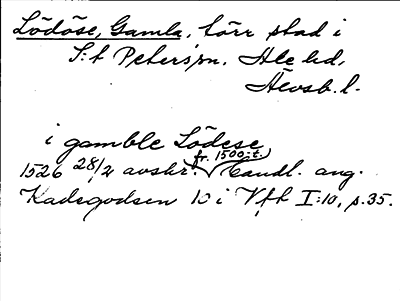 Lödöse, Gamla, förr stad i
S:t Peters sn. Ale hd,
Älvsb. l.
i gamble Lödese
1526 28/2 avskr. fr. 1500-t. Handl. ang.
Kadsgodsen 10 i Vfh I:10, s.35.